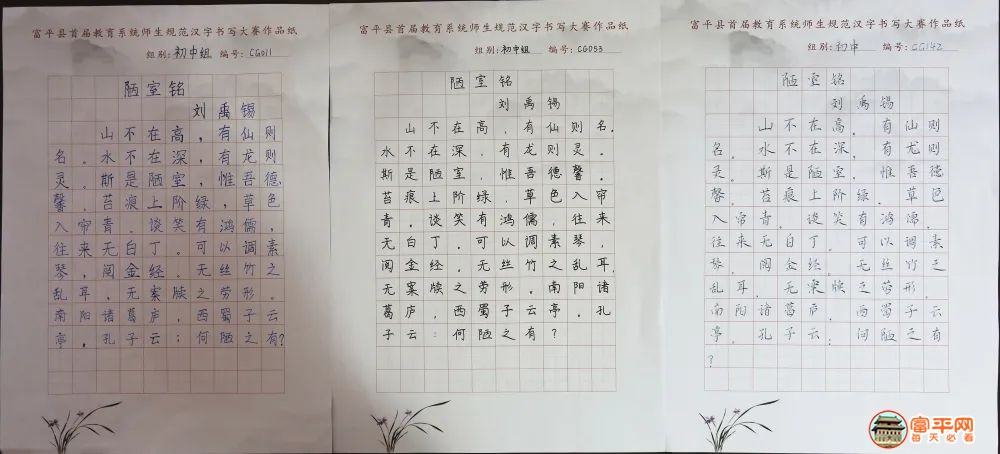 富平县首届教育系统师生规范汉字书写大赛作品纸
组别:初中组 编号:CG011
陋室铭
刘禹锡
山不在高,有仙则
名。水不在深,有龙则
灵。斯是陋室,惟吾德
馨。苔痕上阶绿,草色
入帘青。谈笑有鸿儒,
往来无白丁。可以调素
琴,阅金经。无丝竹之
乱耳,无案牍之劳形。
南阳诸葛庐,西蜀子云
亭。孔子云:何陋之有?
富平县首届教育系统师生规范汉字书写大赛作品纸
组别:初中组 编号:CG053
陋室铭
刘禹锡
山不在高,有仙则名。
水不在深,有龙则灵。
斯是陋室,惟吾德馨。
苔痕上阶绿,草色入帘
青。谈笑有鸿儒,往来
无白丁。可以调素琴,
阅金经。无丝竹之乱耳,
无案牍之劳形。南阳诸
葛庐,西蜀子云亭。孔
子云:何陋之有?
富平县首届教育系统师生规范汉字书写大赛作品纸
组别:初中 编号:CG142
陋室铭
刘禹锡
山不在高。有仙则
名。水不在深,有龙则
灵。斯是陋室。惟吾德
馨。苔痕上阶绿。草色
入帘青。谈笑有鸿儒。
往来无白丁。可以调素
琴。阅金经。无丝竹之
乱耳。无案牍之劳形。
南阳诸葛庐。西蜀子云
亭。孔子云:何陋之有
?
富平网
每天必看